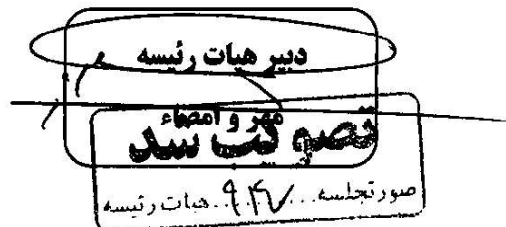 دبیر هیات رئیسه
مهر و امضاء
صورتجلسه ... ۹۴۷ ... هیات رئیسه